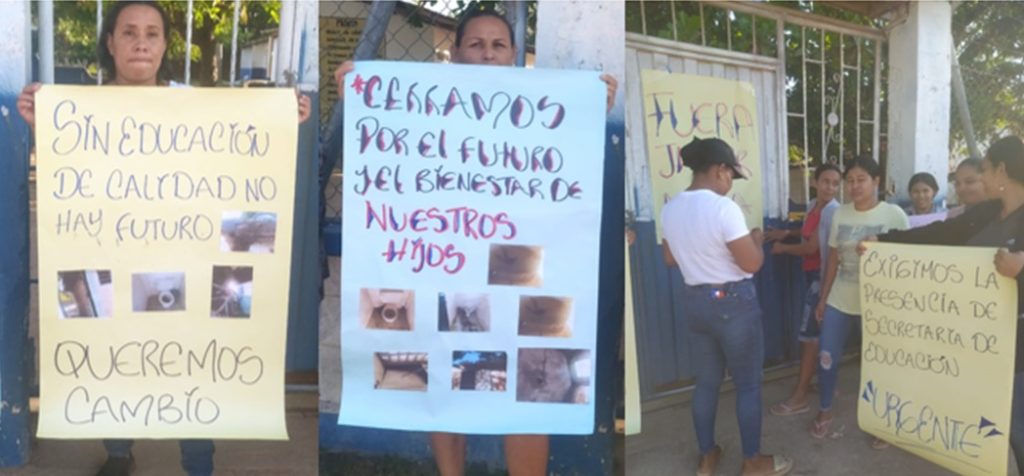 SIN EDUCACIÓN
DE CALIDAD NO
HAY FUTURO
QUEREMOS
CAMBIO
*CERRAMOS
POR EL FUTURO
Y EL BIENESTAR DE
NUESTROS
HIJOS
FUERA
EXIGIMOS LA
PRESENCIA DE
SECRETARIA DE
EDUCACIÓN
"URGENTE"